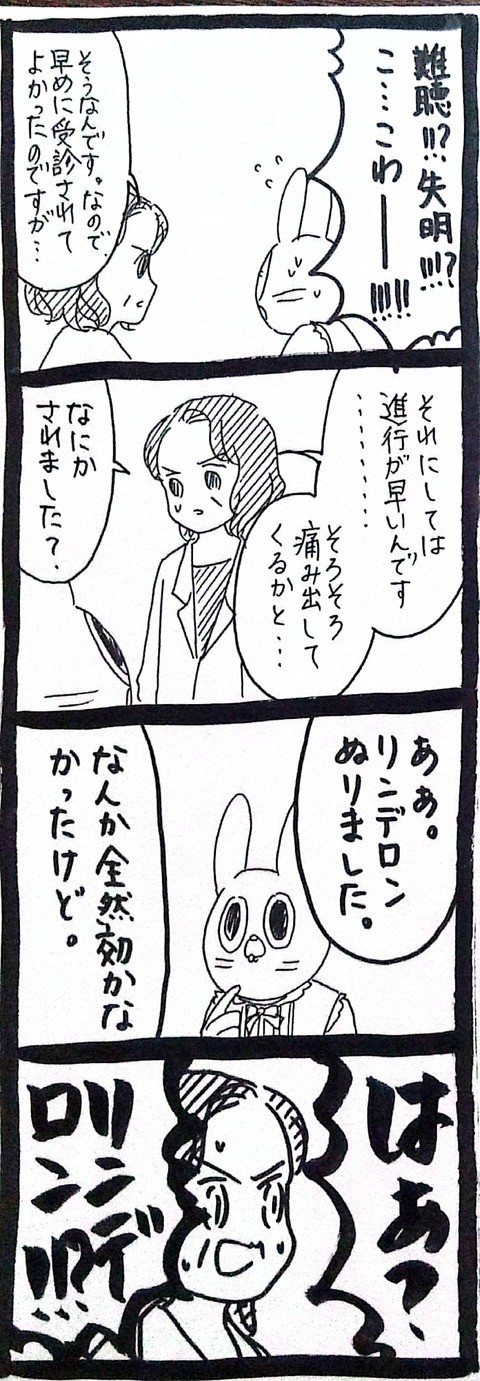 難聴!!?失明!!!?
こ…こわ――!!!!!
そうなんです。なので、
早めに受診されて
よかったのですが…
それにしては
進行が早いんです
………
そろそろ
痛み出して
くるかと…
なにか
されました?
あぁ。
リンデロン
ぬりました。
なんか全然効かな
かったけど。
はぁ?
リンデ
ロン!!?